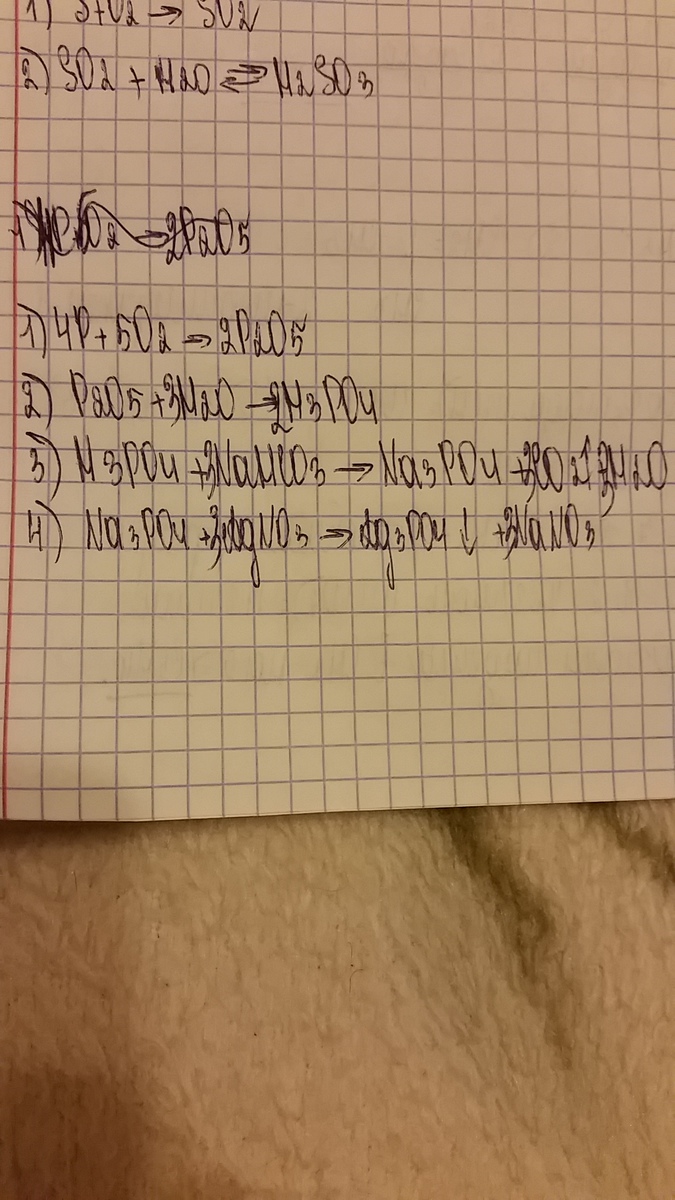 1) S+O2 → SO2
2) SO2 + H2O ⇌ H2SO3
O2 → 2P2O5
1) 4P + 5O2 → 2P2O5
2) P2O5 + 3H2O → 2H3PO4
3) H3PO4 + 3NaHCO3 → Na3PO4 + 3CO2↑ + 3H2O
4) Na3PO4 + 3AgNO3 → Ag3PO4↓ + 3NaNO3